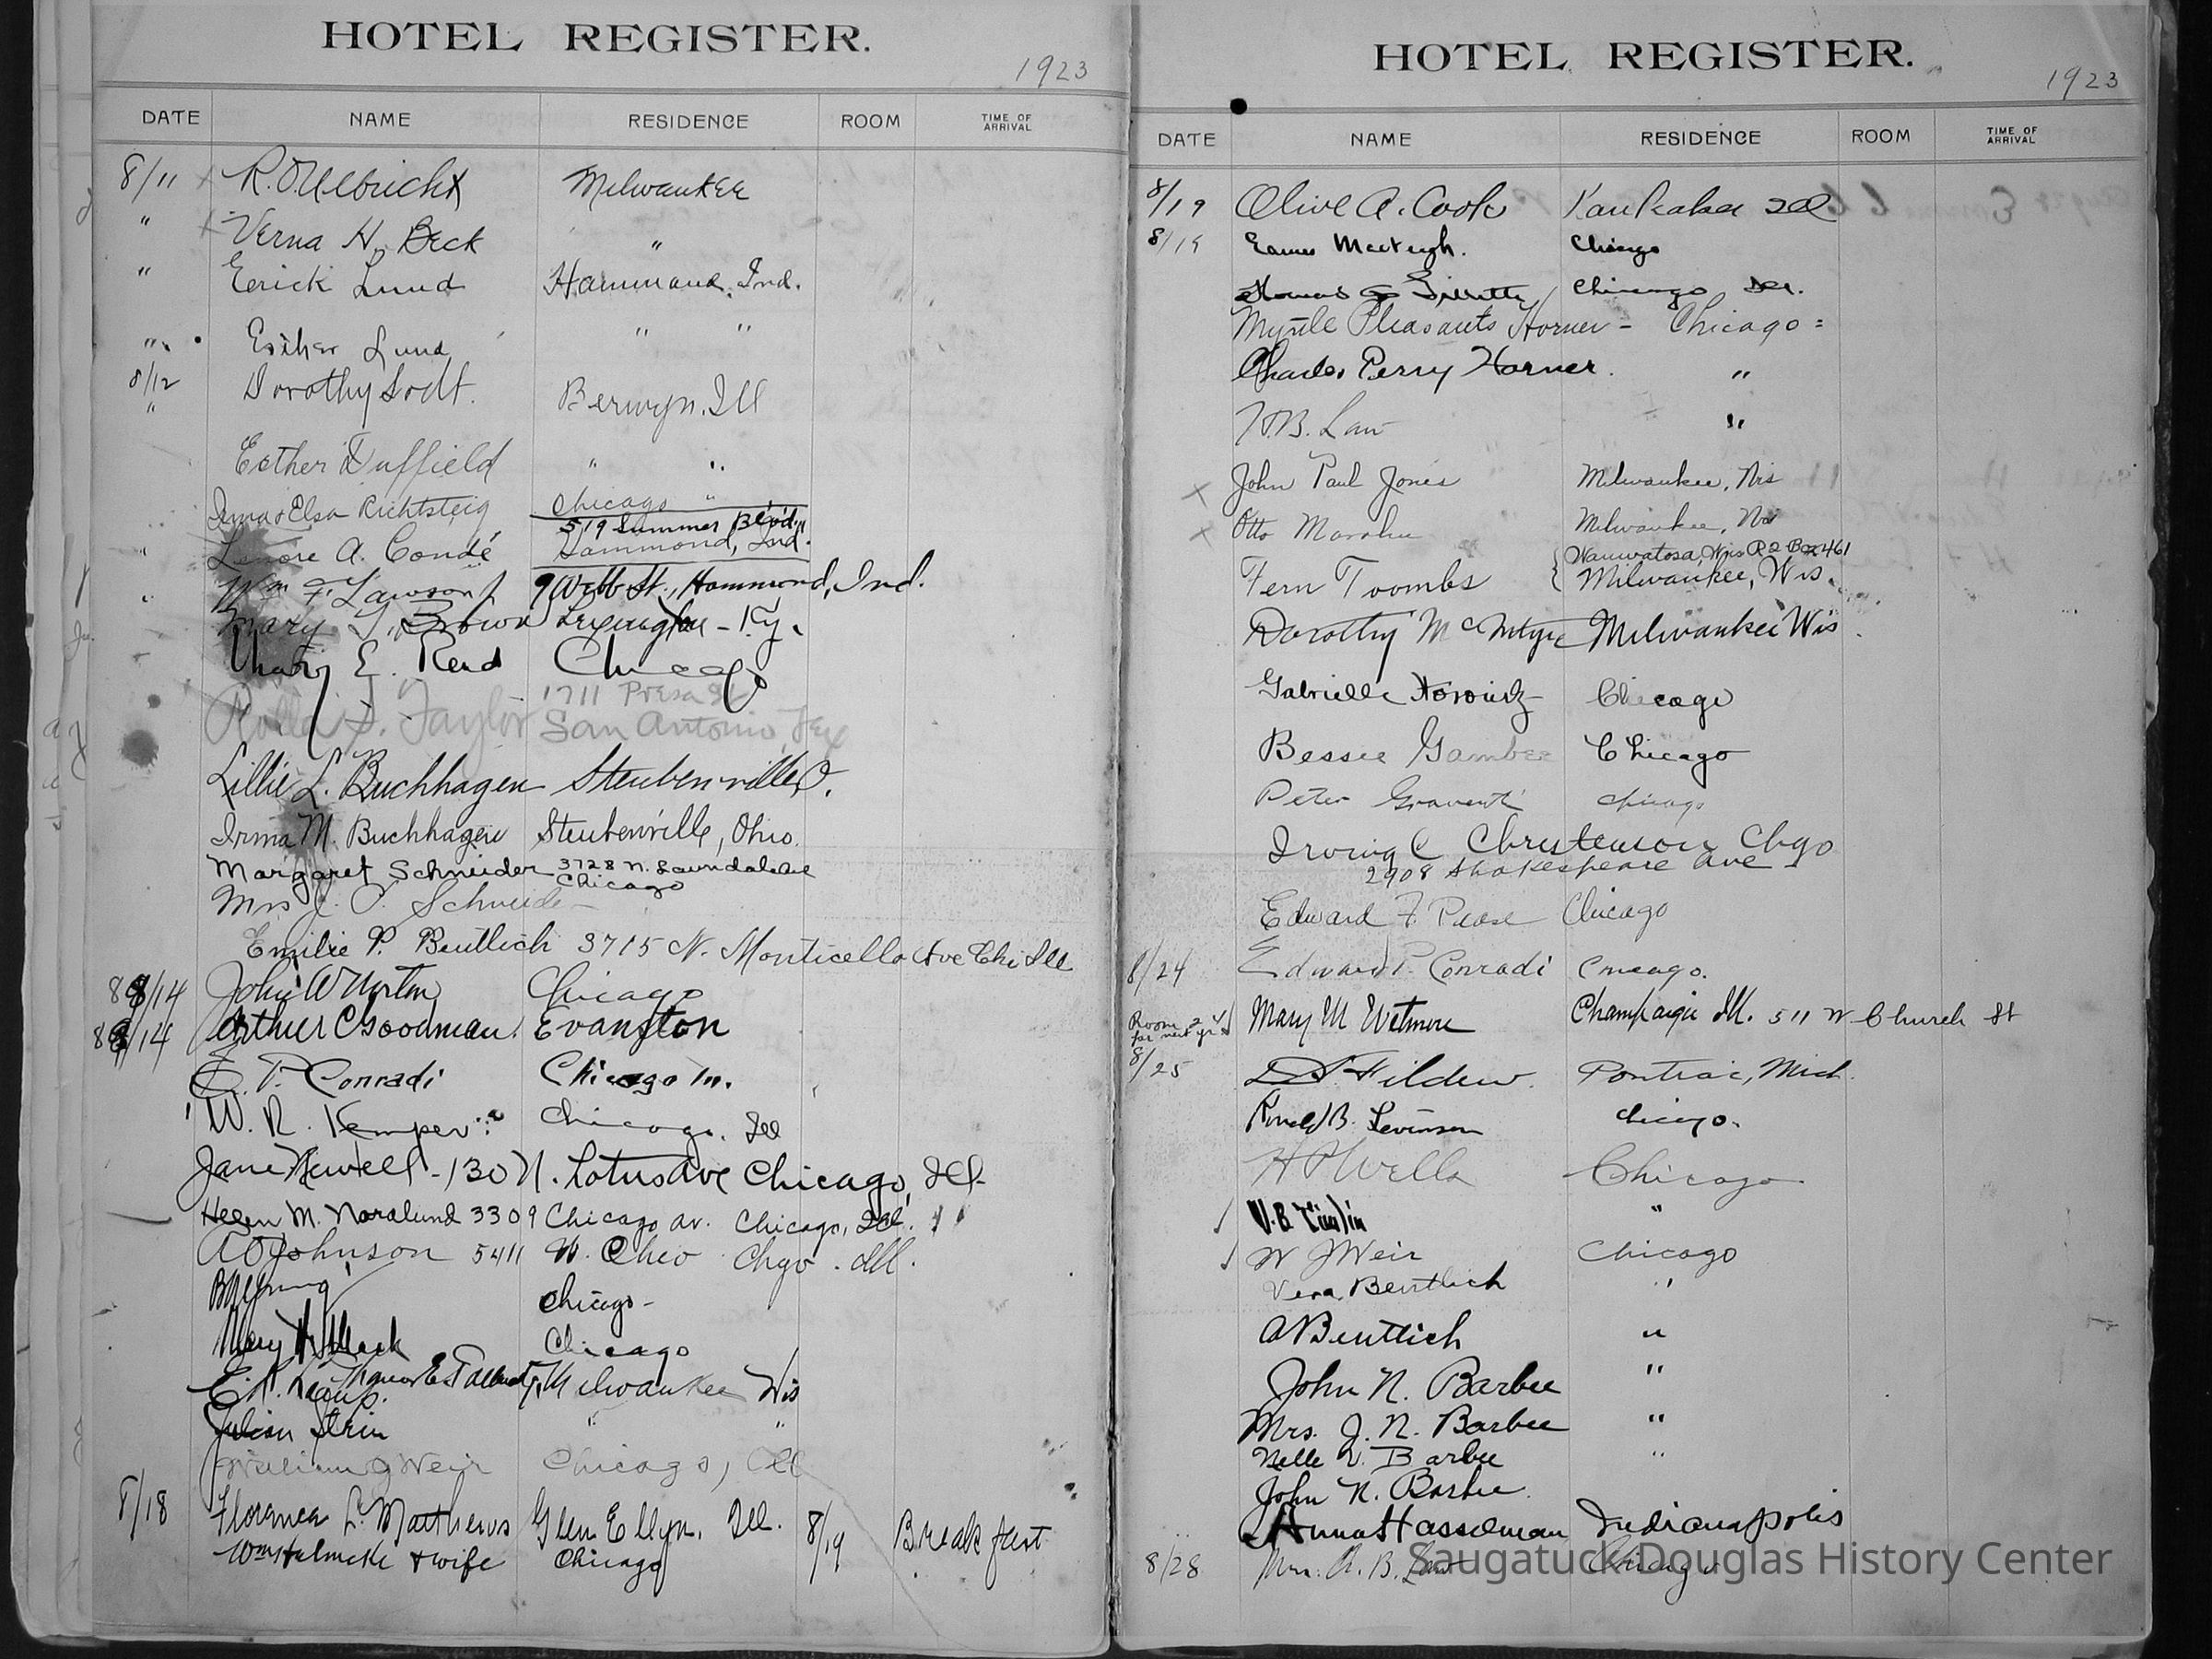 HOTEL REGISTER.
1923
DATE NAME RESIDENCE ROOM TIME OF ARRIVAL
8/11 R. O. Ulbricht Milwaukee
" Verna H. Beck "
" Erick Lund Hammond, Ind.
" Esther Lund " "
8/12 Dorothy Sodt. Berwyn, Ill
"
Esther Duffield " "
Irma & Elsa Richtsteig Chicago "
519 Summer Blvd.
" Lenore A. Condé Hammond, Ind.
" Wm F. Lawson 9 Webb St., Hammond, Ind.
Mary Brown Lexington - Ky.
E. Read Chicago
1711 Presa St
Rolla S. Taylor San Antonio Tex
Lillie L. Buchhagen Steubenville, O.
Irma M. Buchhagen Steubenville, Ohio.
Margaret Schneider 3728 N. Lawndale Ave
Chicago
Mrs J. P. Schneider
Emilie P. Beutlich 3715 N. Monticello Ave Chi Ill
8/14 John W Chicago
8/14 Arthur C Goodman. Evanston
E. P. Conradi Chicago Ill.
W. R. Kemper Chicago. Ill
Jane Newell - 130 N. Lotus Ave Chicago, Ill
Helen M. Noralund 3309 Chicago av. Chicago, Ill.
A O Johnson 5411 W. Ohio Chgo. Ill.
Chicago -
Mary H. Chicago
E. K. Milwaukee Wis
Julian Stein " "
William J Weir Chicago, Ill
8/18 Florence L. Matthews Glen Ellyn, Ill. 8/19 Breakfast
Wm Helmcke & wife Chicago
HOTEL REGISTER.
1923
DATE NAME RESIDENCE ROOM TIME OF ARRIVAL
8/19 Olive A. Cook Kankakee Ill
8/19 Eames MacVeagh. Chicago
Thomas Chicago Ill.
Myrtle Pleasants Horner - Chicago =
Charles Perry Horner. "
H. B. Law "
x John Paul Jones Milwaukee, Wis
x Otto Milwaukee, Wis
Wauwatosa, Wis R2 Box 461
Fern Toombs { Milwaukee, Wis.
Dorothy McIntyre Milwaukee Wis.
Gabrielle Horowitz Chicago
Bessie Gamber Chicago
Peter Chicago
Irving C Christenson Chgo
2908 Shakespeare Ave
Edward F. Pease Chicago
8/24 Edward P. Conradi Chicago.
Room 24 for next yr Mary M Wetmore Champaign Ill. 511 W Church St
8/25 Fildew. Pontiac, Mich.
Ronald B. Levinson Chicago.
H P Wells Chicago
V. B. "
W J Weir Chicago
Vera Beutlich "
A Beutlich "
John N. Barbee "
Mrs. J. N. Barbee "
Nelle V. Barbee "
John N. Barbee
Anna Hasselman Indianapolis
8/28 Mrs. A. B. Law Chicago
Saugatuck Douglas History Center